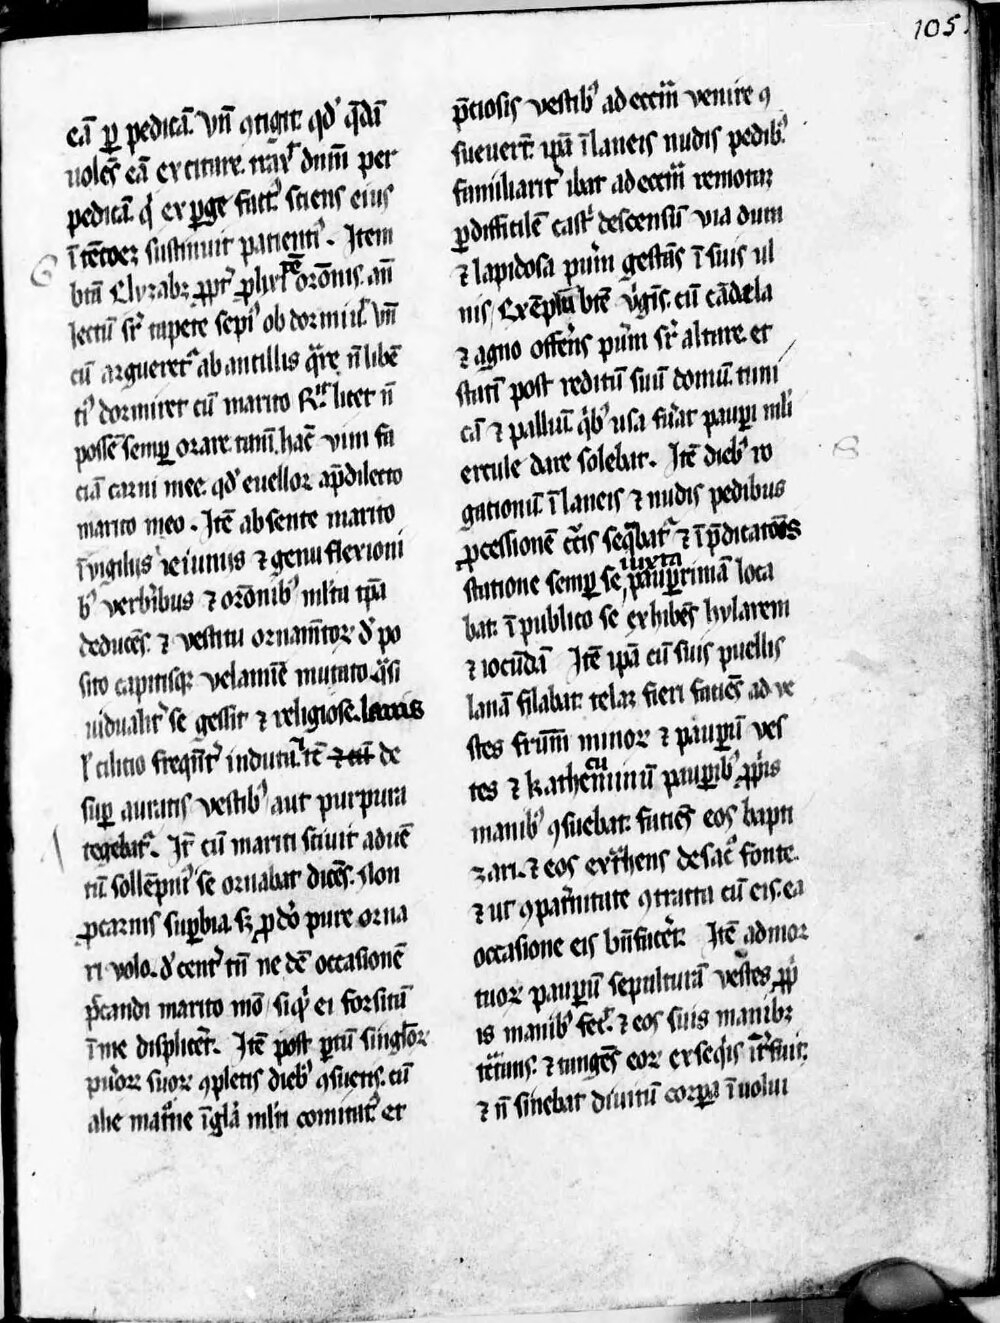 105
eā ꝑ pedicā. Vn̄ ꝯtigit. qd' q̄dā
uolēs eā excitare. trax͛ dnm̄ per
pedicā. q' exꝑge fact͛. sciens eius
ītētoeꝫ sustinuit patient͛. Item
btā Elyzabꝫ ꝓpt͛ ꝓlixitatē or̄onis. an̄
lectū st͛ tapete sepi' ob dormiit. Vn̄
cū argueret͛ ab ancillis q̄re n̄ libē
ti' dormiret cū marito R̄. licet n̄
possē semꝑ orare. tam̄. hāc vim fa
ciā carni mee. qd' euellor ap̄dilecto
marito meo. Itē absente marito
ī vigiliis ieiuniis ⁊ genuflexioni
bꝰ verb͛ibus ⁊ or̄onibꝰ ml'ta tp̄a
deducēs. ⁊ vestitu ornam̄toꝝ d' po
sito capitisqꝫ velamīe mutato. q̄si
uidualit͛ se gessit ⁊ religiose. laneis
l' cilicio freqn̄t͛ induta. itē de
suꝑ auratis vestibꝰ aut purpura
tegebat͛. It͛ cū mariti sciuit aduē
tū sollēpni' se ornabat dicēs. Non
ꝓ carnis suꝑbia. sꝫ ꝓ dō pure orna
ri volo. d'cent͛ tn̄ ne dē occasionē
p̄candi marito mō / siq' ei forsitā
ī me displicet͛. Itē post ꝑtū singl'oꝝ
pu͛oꝝ suoꝝ ꝯpletis diebꝰ ꝯsuetis. cū
alie mat͛ne ī gl̄a ml'ti comitat͛ et
p̄ciosis vestibꝰ ad ecc̄m venire ꝯ
sueuert͛. ip̄a ī laneis nudis pedibꝰ
familiarit͛ ibat ad ecc̄m remotaꝫ
ꝑ difficilē cast͛ descensū via dura
⁊ lapidosa pu͛m gestās ī suis ul
nis / Exēplū btē v͛gīs. cū cādela
⁊ agno offe͛ns pu͛m st͛ altare. et
statī post reditū suū domū. tuni
cā ⁊ palliū. q̄bꝰ usa fu͛at pauꝑi mli
ercule dare solebat. Itē diebꝰ ro
gationū. ī laneis ⁊ nudis pedibus
ꝓcessionē c͛cis seq̄bat͛ ⁊ ī p̄dicatōīs
statione semꝑ se iuxta pauꝑrimā loca
bat. ī publico se exhibēs hylarem
⁊ iocūdā Itē ip̄a cū suis puellis
lanā filabat. telas fieri faciēs ad ve
stes fr̄um minoꝝ ⁊ pauꝑū ves
tes ⁊ kathecuminū pauꝑibꝰ ꝓp͛is
manibꝰ ꝯsuebat. faciēs eos bapti
zari. ⁊ eos extrahens de sac͛ fonte.
⁊ ut ꝯpat͛nitate ꝯtracta cū eis. ea
occasione eis bn̄facēt. Itē ad mor
tuoꝝ pauꝑū sepulturā vestes ꝓp͛
is manibꝰ fec͛. ⁊ eos suis manibꝫ
⁊ tangēs eoꝝ exseq͛is it͛fuit.
⁊ n̄ sinebat diuitū corꝑa īuolui